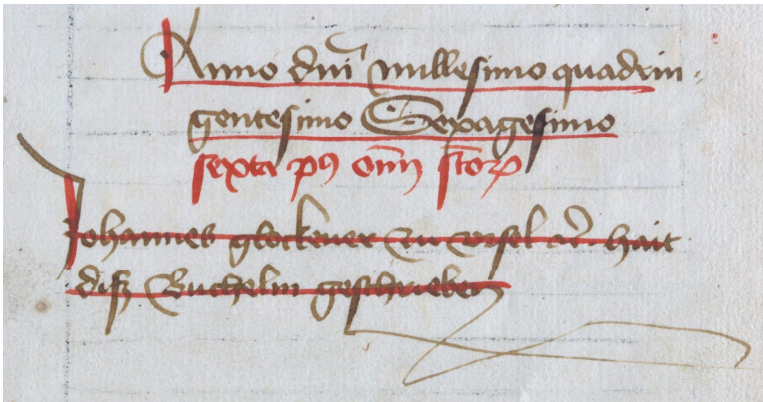 Anno dm̄ millesimo quadrin-
gentesimo Sexagesimo
sexta pꝰ om̄ sctoꝝ
Johannes glockener zu vrsel hait
diß Buchelin geschrieben